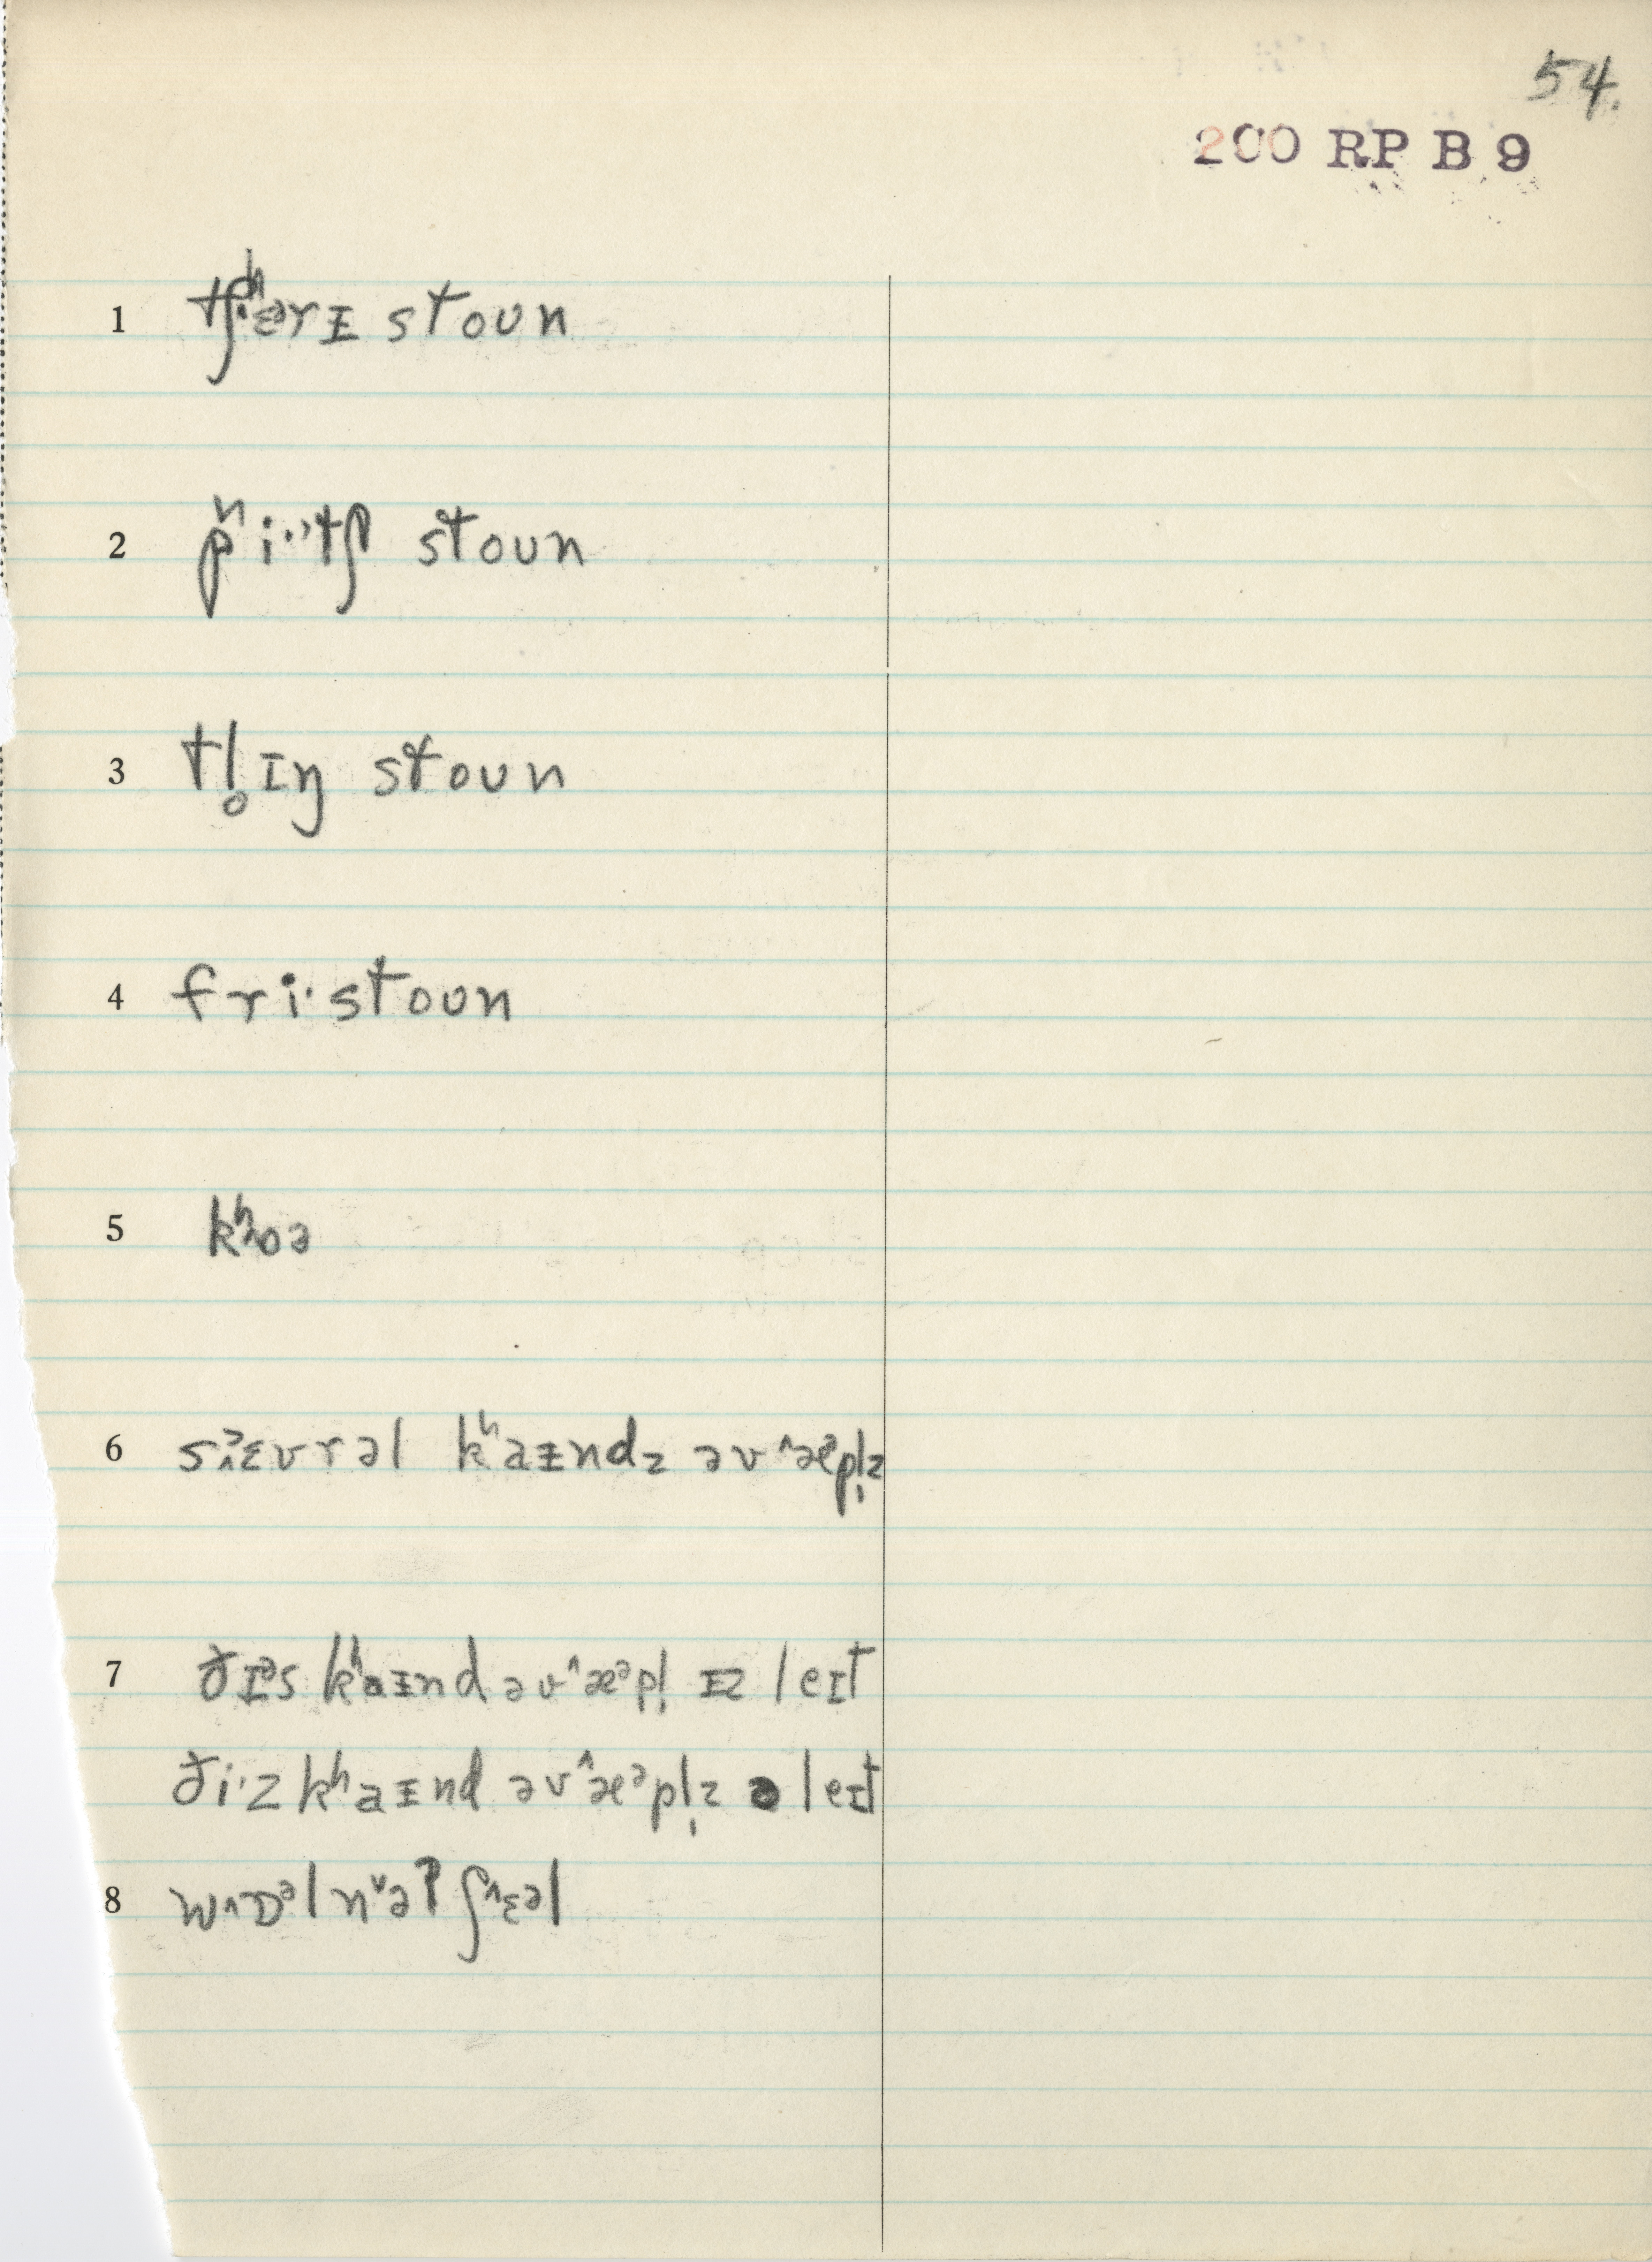 54.
200 RP B 9
1 tʃʰərɪ stoun
2 pʰi·'tʃ stoun
3 tl̥ɪŋ stoun
4 fri·stoun
5 kʰoə
6 sɛvrəl kʰaɪndz əv ˄æᵊpl̩z
7 ðɪᵊs kʰaɪnd əv ˄æᵊpl̩ ɪz leɪt
ði·z kʰaɪnd əv ˄æᵊpl̩z ə leɪt
8 w˄ɒᵊlnˇəʔ ʃ˄ɛəl